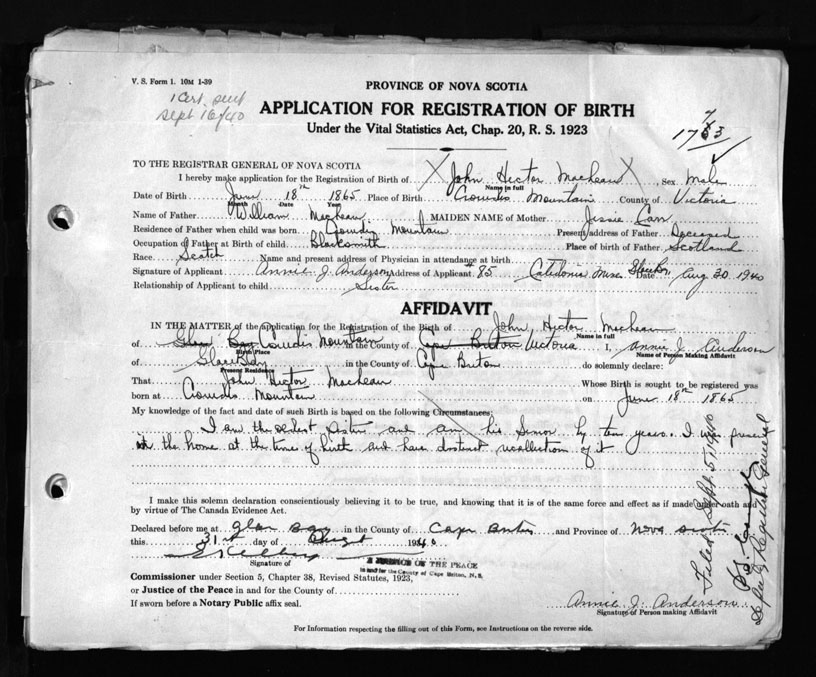 V. S. Form 1. 10M 1-39
1 Cert. sent
Sept 16/40
PROVINCE OF NOVA SCOTIA
APPLICATION FOR REGISTRATION OF BIRTH
Under the Vital Statistics Act, Chap. 20, R. S. 1923
TO THE REGISTRAR GENERAL OF NOVA SCOTIA
I hereby make application for the Registration of Birth of X John Hector MacLean X, Sex Male
Name in full
Date of Birth June 18th 1865 Place of Birth Crowdis Mountain County of Victoria
Month Date Year
Name of Father William MacLean MAIDEN NAME of Mother Jessie Carr
Residence of Father when child was born Crowdis Mountain Present address of Father Deceased
Occupation of Father at Birth of child Blacksmith Place of birth of Father Scotland
Race Scotch Name and present address of Physician in attendance at birth
Signature of Applicant Annie J. Anderson Address of Applicant 85 Caledonia Mines Date Aug 30 1940
Relationship of Applicant to child Sister
AFFIDAVIT
IN THE MATTER of the application for the Registration of the Birth of John Hector MacLean
Name in full
of Glace Bay Crowdis Mountain in the County of Cape Breton Victoria I, Annie J. Anderson
Birth Place Name of Person Making Affidavit
of Glace Bay in the County of Cape Breton do solemnly declare:
Present Residence
That John Hector MacLean Whose Birth is sought to be registered was
born at Crowdis Mountain on June 18th 1865
My knowledge of the fact and date of such Birth is based on the following Circumstances:
I am the oldest sister and am his senior by ten years. I was present
in the home at the time of birth and have distinct recollection of it
I make this solemn declaration conscientiously believing it to be true, and knowing that it is of the same force and effect as if made under oath and
by virtue of The Canada Evidence Act.
Declared before me at Glace Bay in the County of Cape Breton and Province of Nova Scotia
this 31st day of August 1940
Signature of
A JUSTICE OF THE PEACE
in and for the County of Cape Breton, N. S.
Commissioner under Section 5, Chapter 38, Revised Statutes, 1923,
or Justice of the Peace in and for the County of
If sworn before a Notary Public affix seal.
Annie J. Anderson
Signature of Person making Affidavit
For Information respecting the filling out of this Form, see Instructions on the reverse side.
Filed Sept. 5 1940
Deputy Registrar General